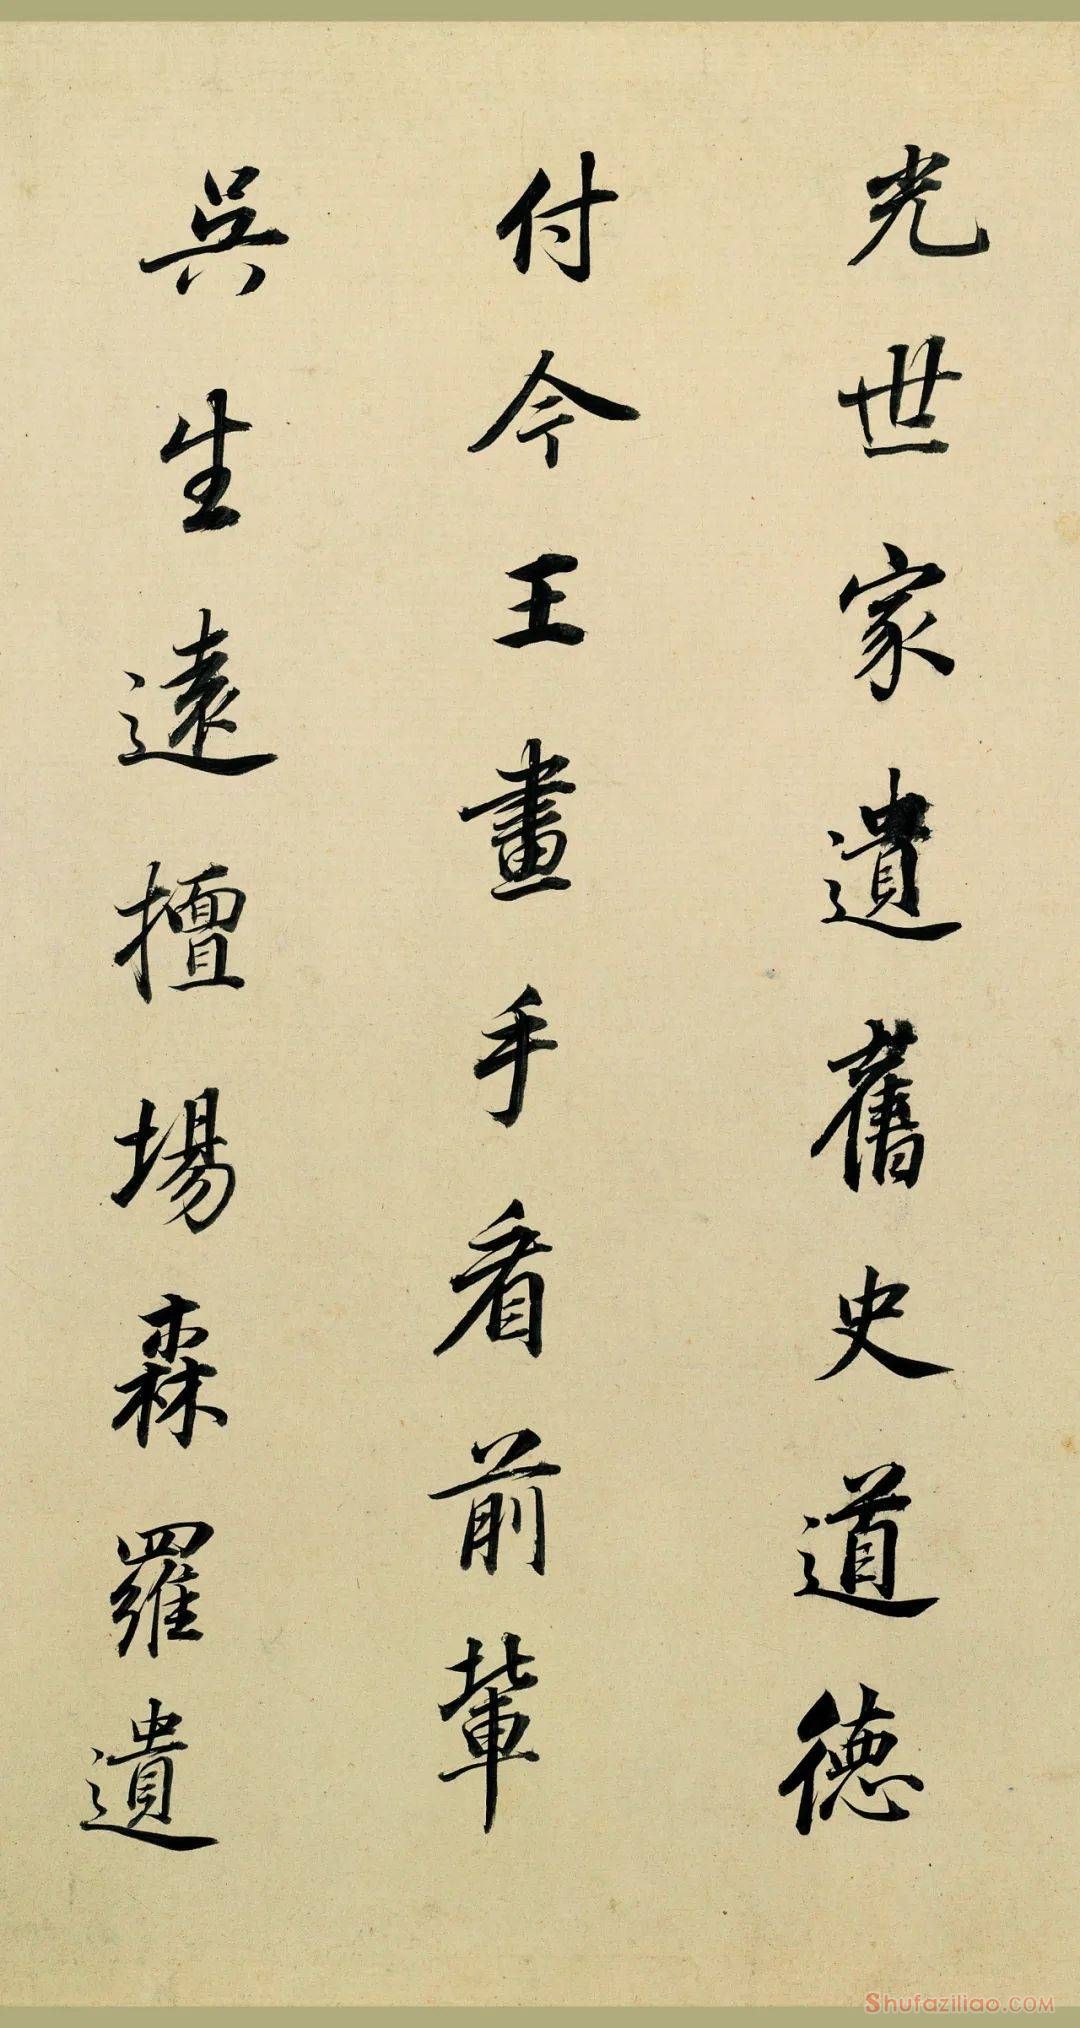 光世家遺舊史道德
付今王畫手看前輩
吳生遠擅場森羅遺
Shufaziliao.COM